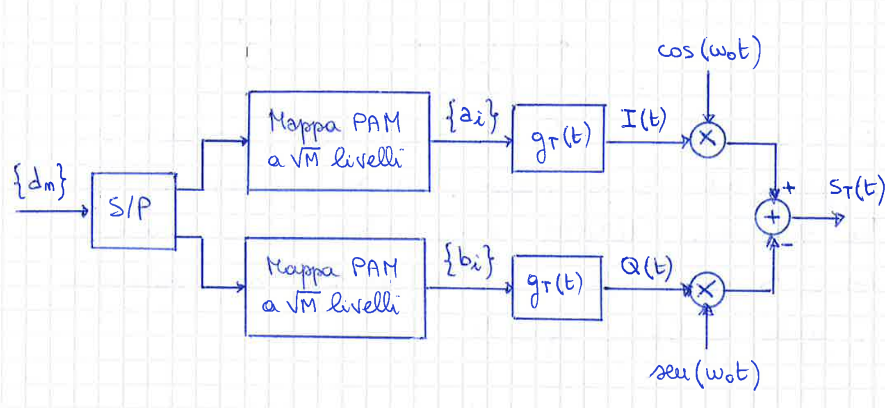 cos(ω₀t)
Mappa PAM
a √M livelli
{aᵢ}
g_T(t)
I(t)
{dₘ}
S/P
+
S_T(t)
Mappa PAM
a √M livelli
{bᵢ}
g_T(t)
Q(t)
-
sen(ω₀t)